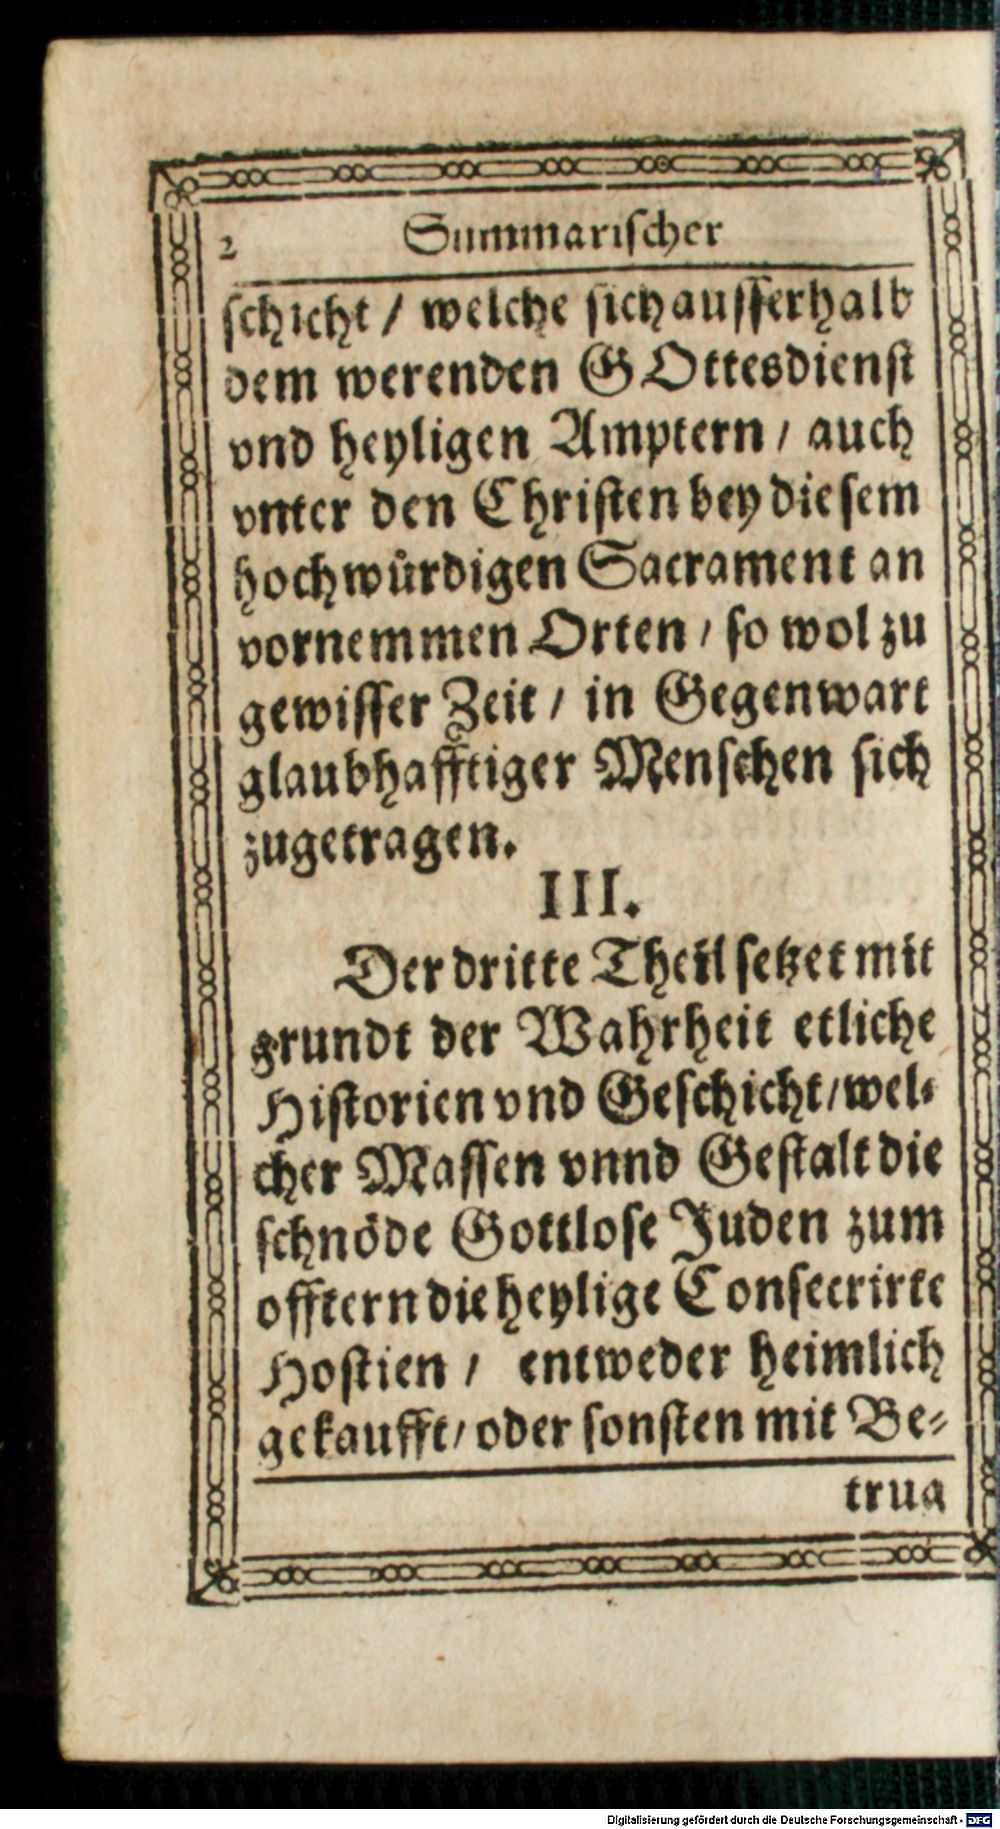 2 Summarischer
schicht / welche sich ausserhalb
dem werenden GOttesdienst
vnd heyligen Amptern / auch
vnter den Christen bey diesem
hochwürdigen Sacrament an
vornemmen Orten / so wol zu
gewisser Zeit / in Gegenwart
glaubhafftiger Menschen sich
zugetragen.
III.
Der dritte Theil setzet mit
grundt der Wahrheit etliche
Historien vnd Geschicht / wel-
cher Massen vnnd Gestalt die
schnöde Gottlose Juden zum
offtern die heylige Consecrirte
Hostien / entweder heimlich
gekaufft / oder sonsten mit Be-
trug
Digitalisierung gefördert durch die Deutsche Forschungsgemeinschaft - DFG